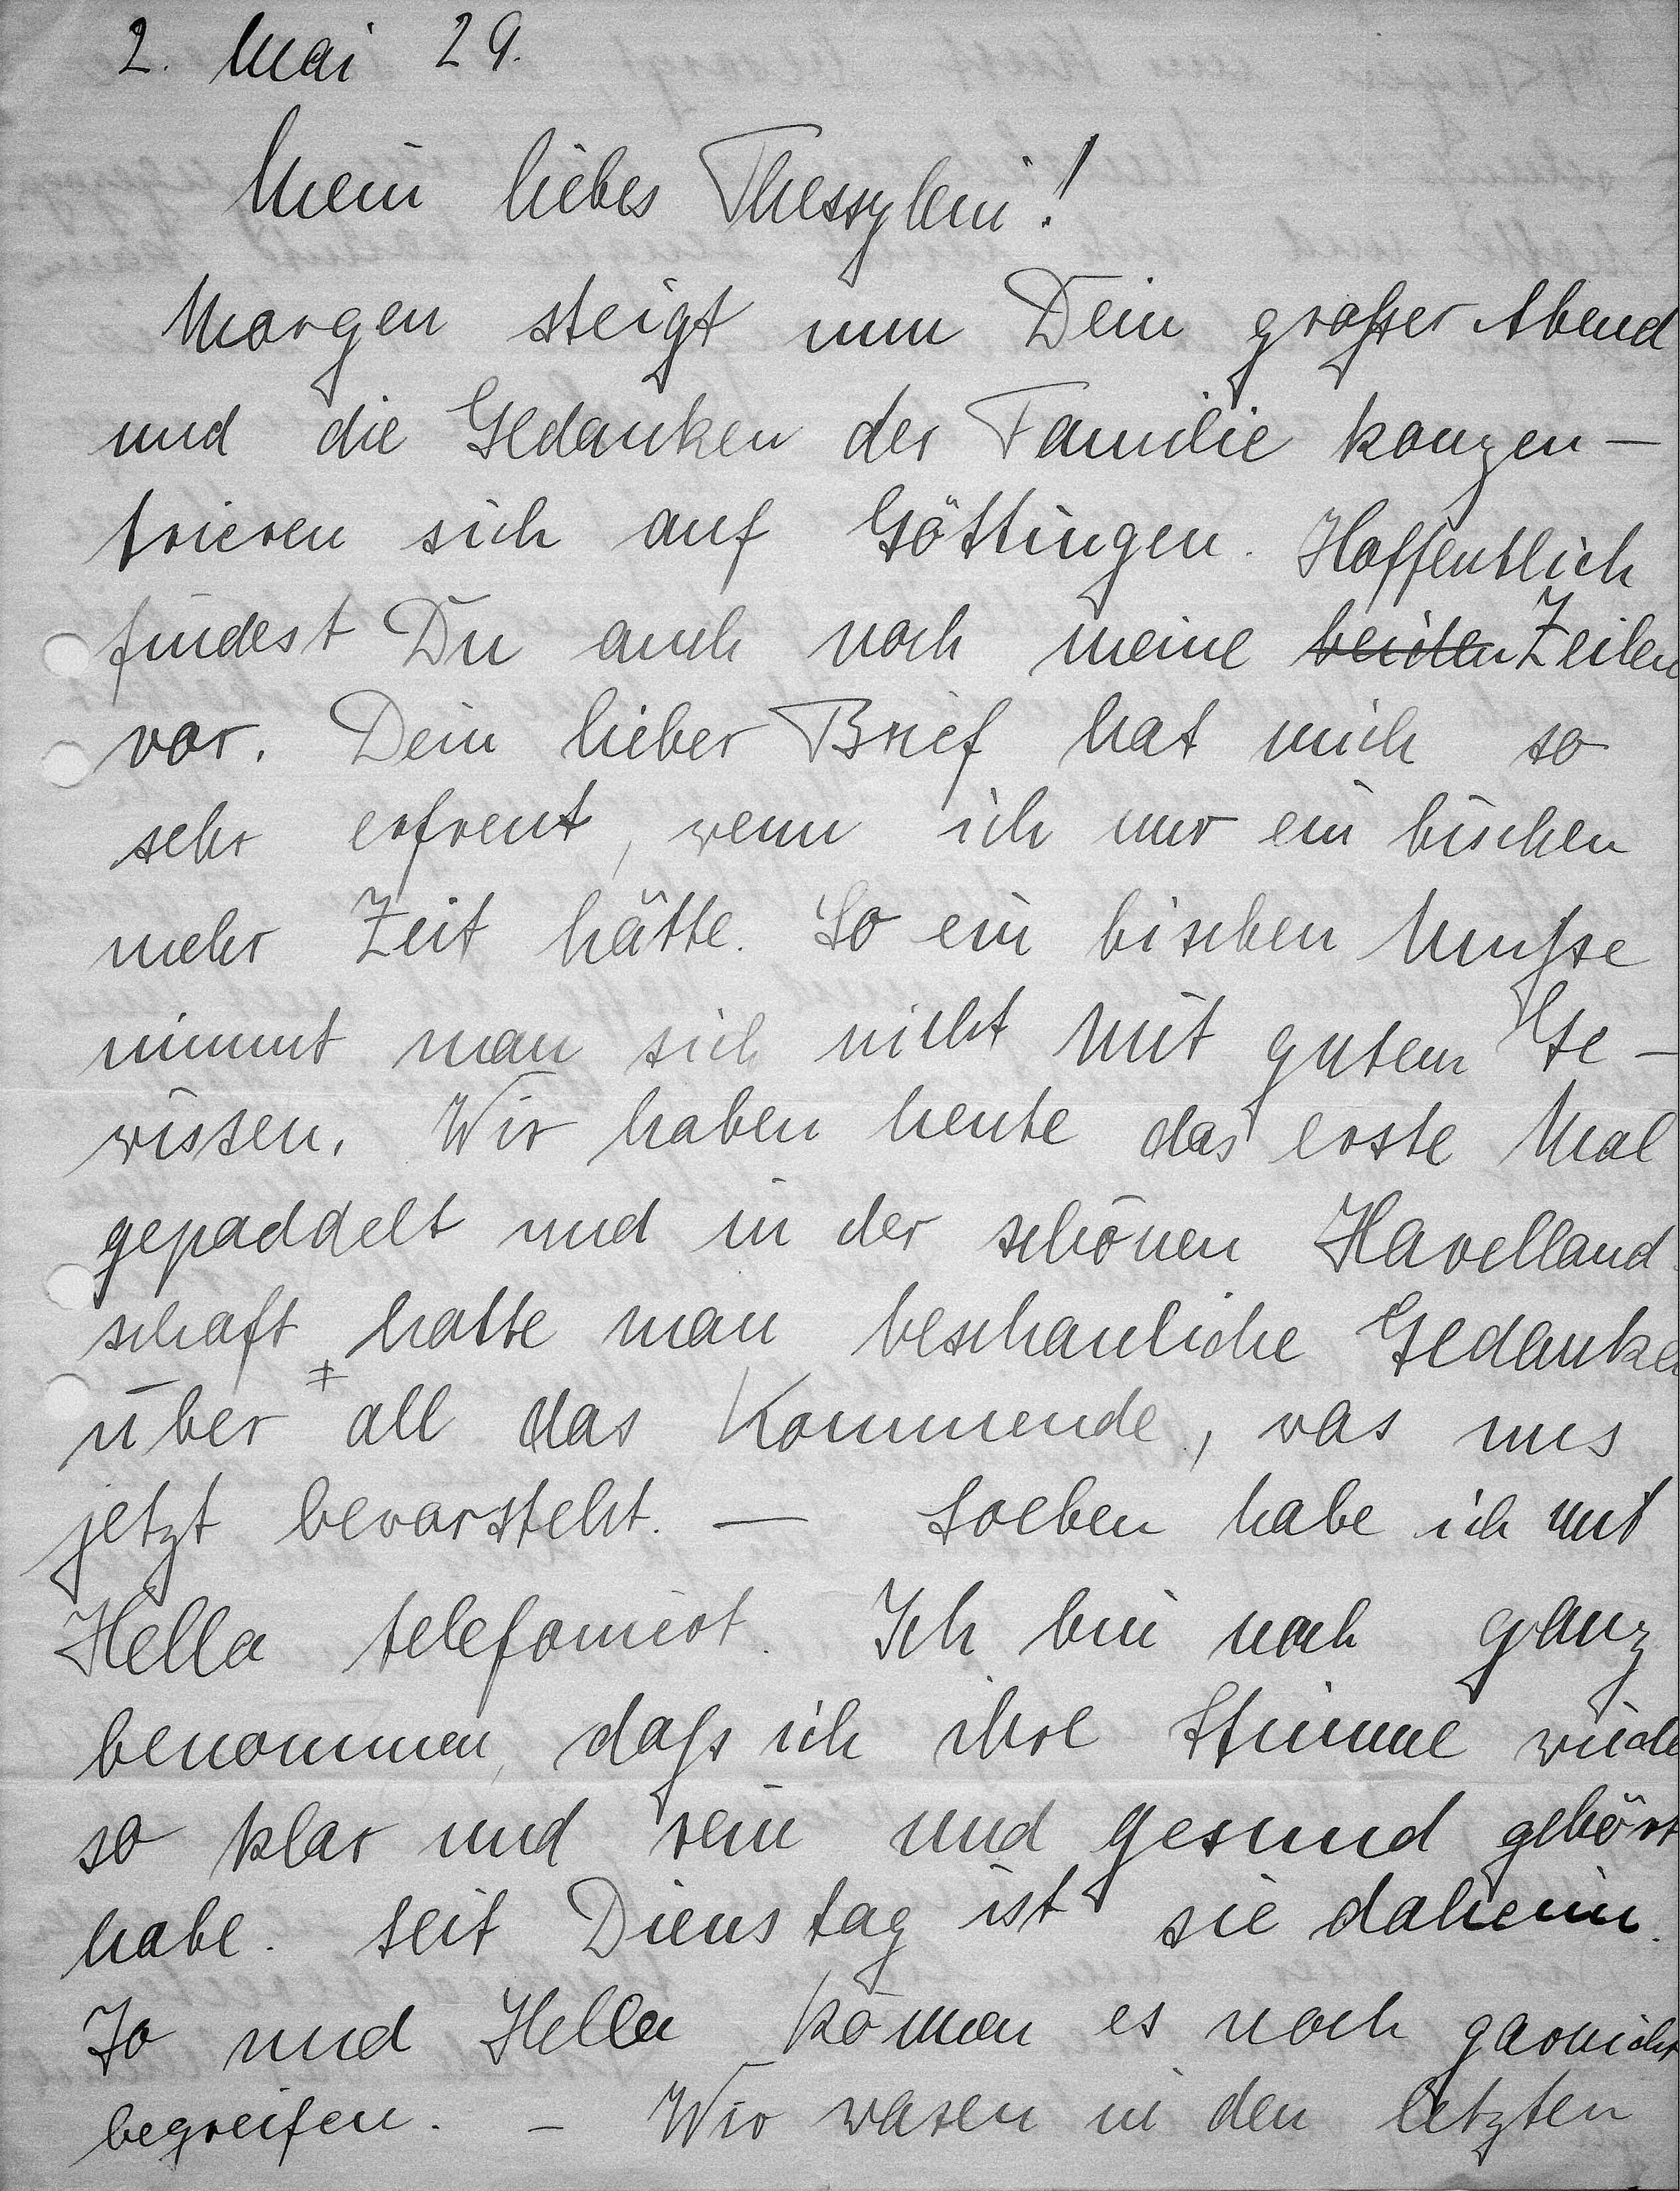 2. Mai 29.
Mein liebes Thessylein!
Morgen steigt nun Dein großer Abend
und die Gedanken der Familie konzen-
trieren sich auf Göttingen. Hoffentlich
findest Du auch noch meine beiden Zeilen
vor. Dein lieber Brief hat mich so
sehr erfreut, wenn ich nur ein bischen
mehr Zeit hätte. So ein bischen Muße
nimmt man sich nicht mit gutem Ge-
wissen. Wir haben heute das erste Mal
gepaddelt und in der schönen Havelland-
schaft hatte man beschauliche Gedanken
über all das Kommende, was uns
jetzt bevorsteht. — Soeben habe ich mit
Hella telefoniert. Ich bin noch ganz
benommen, daß ich ihre Stimme wieder
so klar und rein und gesund gehört
habe. Seit Dienstag ist sie daheim.
Jo und Hella können es noch garnicht
begreifen. – Wir waren in den letzten